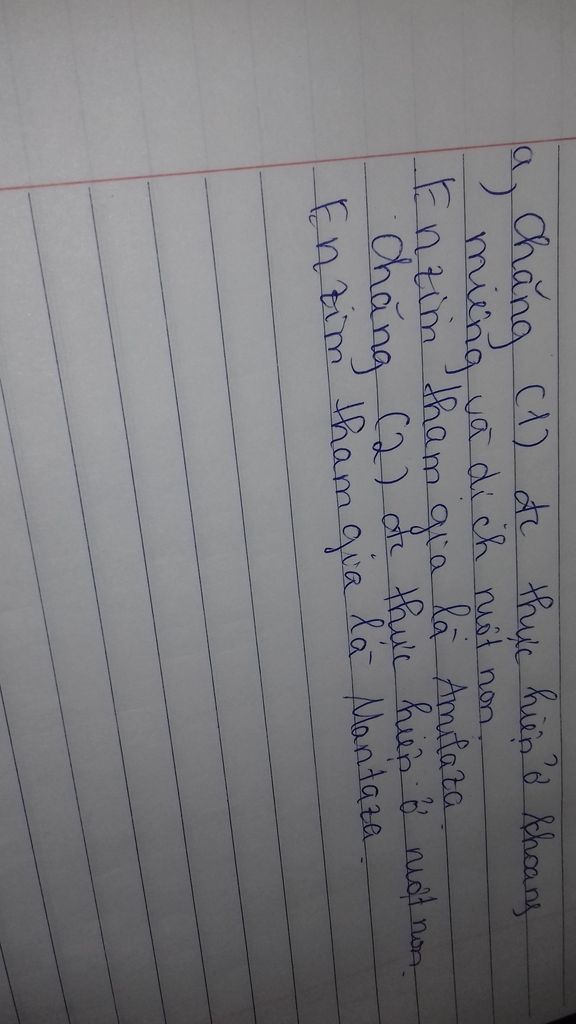 a, Chăng (1) đc thực hiện ở khoang
miêng và dịch ruột non.
Enzim tham gia là Amilaza.
Chăng (2) đc thực hiện ở ruột non.
Enzim tham gia là Mantaza.